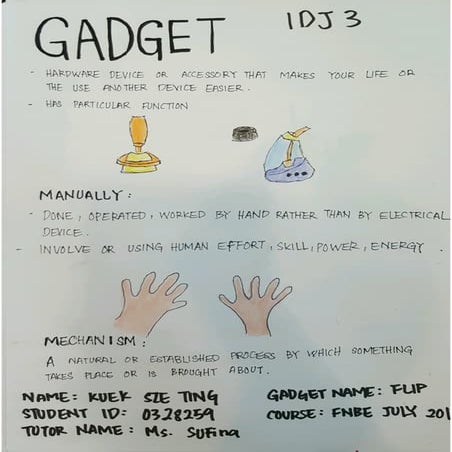 GADGET IDJ3
- HARDWARE DEVICE OR ACCESSORY THAT MAKES YOUR LIFE OR
THE USE ANOTHER DEVICE EASIER.
- HAS PARTICULAR FUNCTION
MANUALLY:
- DONE, OPERATED, WORKED BY HAND RATHER THAN BY ELECTRICAL
DEVICE.
- INVOLVE OR USING HUMAN EFFORT, SKILL, POWER, ENERGY.
MECHANISM:
A NATURAL OR ESTABLISHED PROCESS BY WHICH SOMETHING
TAKES PLACE OR IS BROUGHT ABOUT.
NAME: KUEK SZE TING GADGET NAME: FLIP
STUDENT ID: 0328259 COURSE: FNBE JULY 201
TUTOR NAME: Ms. SUFina